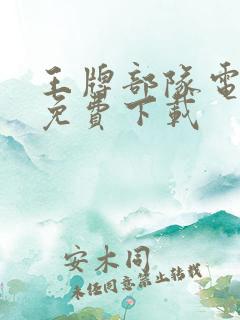 王牌部隊電
免費下載
安木同
未经同意禁止转载